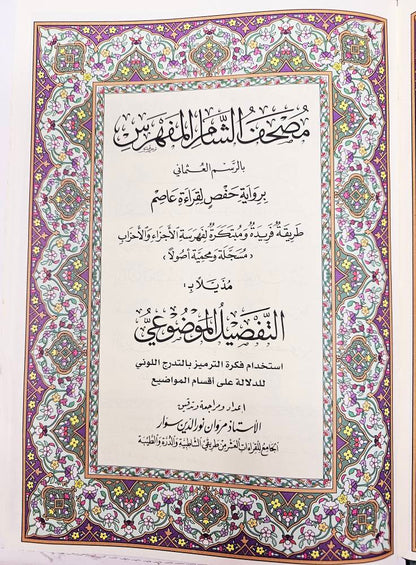 مُصْحَفُ الشَّامِ المُفَهْرَسِ
بالرَّسْمِ العُثْمَانِيّ
بِرِوَايَةِ حَفْصٍ لِقِرَاءَةِ عَاصِمٍ
طَرِيقَةٌ فَرِيدَةٌ وَمُبْتَكَرَةٌ لِفَهْرَسَةِ الأَجْزَاءِ وَالأَحْزَابِ
﴿ مُسَجَّلَة وَمحمِيَّة أُصُولاً ﴾
مُذَيَّلاً بـ :
التَّفْصِيلُ المَوْضُوعِيُّ
استخدام فكرة الترميز بالتدرج اللوني
للدلالة على أقسام المواضيع
إعداد ومراجعة وتدقيق
الأستاذ مروان نور الدين سوار
الجَامِع لِلقِرَاءَاتِ العَشْرِ مِن طَرِيقَيِ الشَّاطِبِيَّةِ وَالدُّرَّةِ وَالطَّيِّبَة